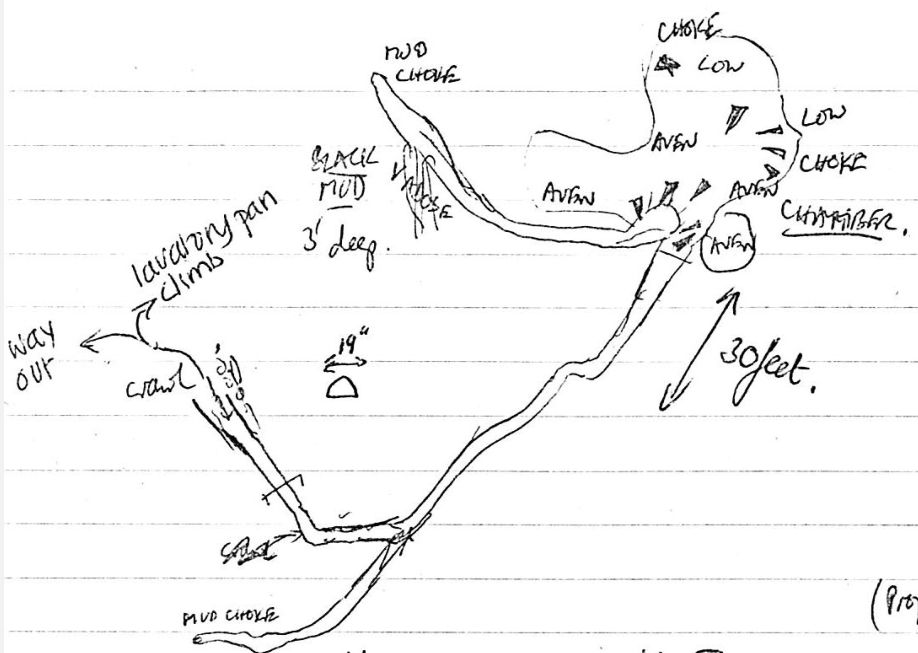 CHOKE
LOW
MUD
CHOKE
LOW
AVEN
CHOKE
BLACK
MUD
3' deep.
AVEN
AVEN
CHAMBER.
AVEN
lavatory pan
climb
way
out
crawl
19"
30 feet.
MUD CHOKE